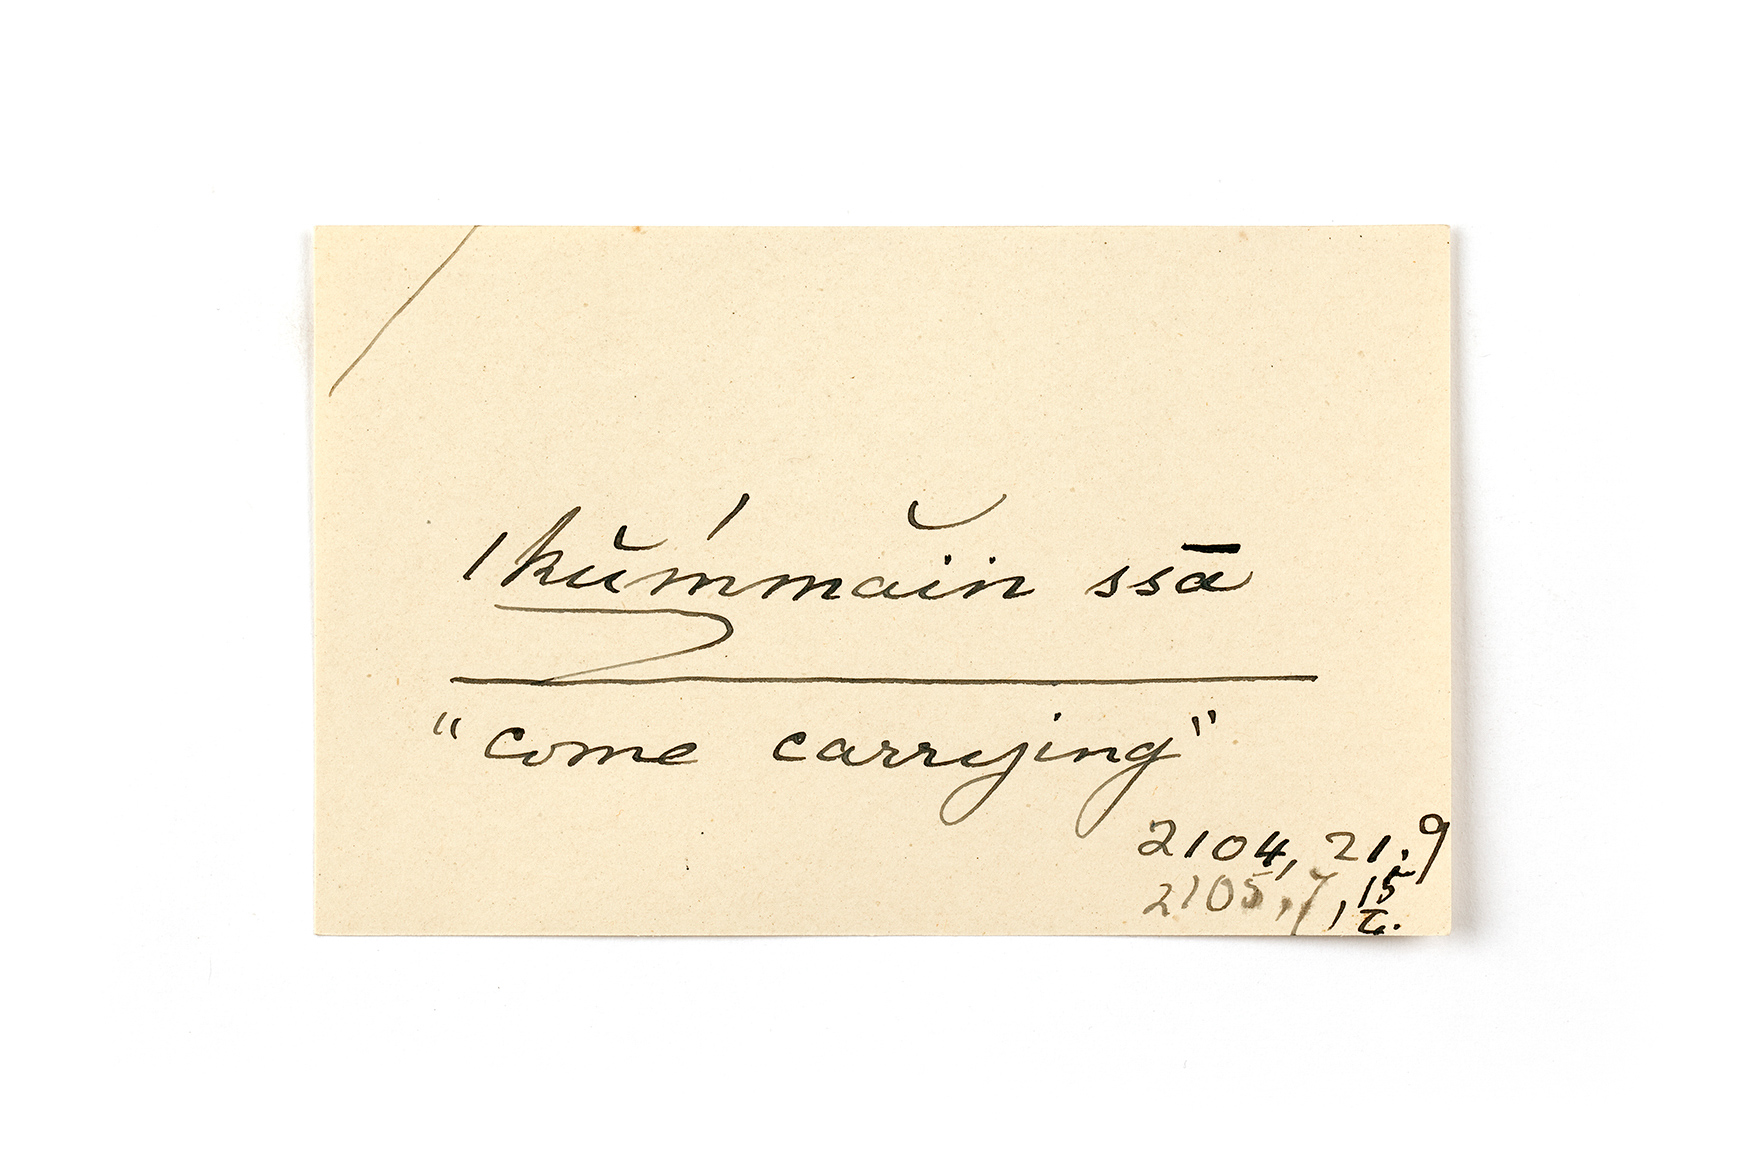 ǀkŭ́mmăin ssā
"come carrying"
2104, 21.9
2105, 7, 15